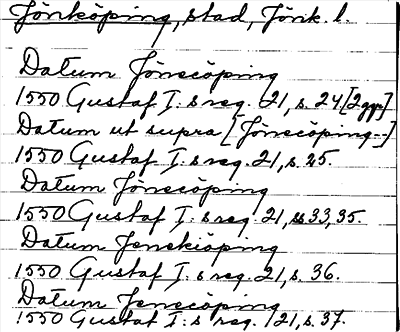 Jönköping, stad, Jönk. l.
Datum Jönecöping
1550 Gustaf I:s reg. 21, s. 24 [2 ggr]
Datum ut supra [Jönecöping--]
1550 Gustaf I:s reg. 21, s. 25.
Datum Jönecöping
1550 Gustaf I:s reg. 21, ss 33, 35.
Datum Jenekiöping
1550 Gustaf I:s reg. 21, s. 36.
Datum Jenecöping
1550 Gustaf I:s reg. 21, s. 37.